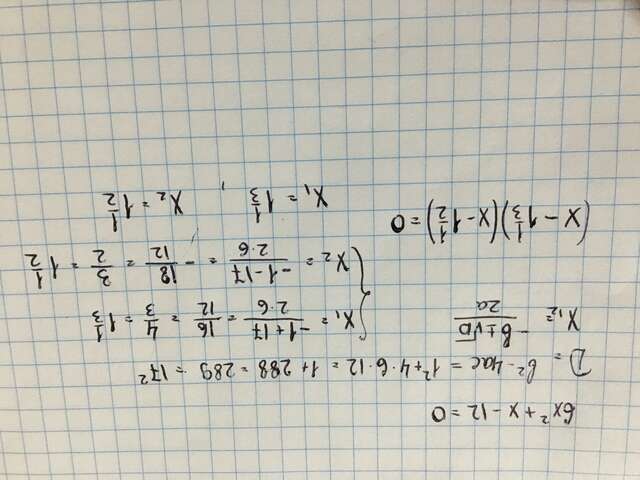 6x² + x - 12 = 0
D = b² - 4ac = 1² + 4·6·12 = 1 + 288 = 289 = 17²
x₁,₂ = (-b ± √D)/(2a)
x₁ = (-1 + 17)/(2·6) = 16/12 = 4/3 = 1 1/3
x₂ = (-1 - 17)/(2·6) = -18/12 = 3/2 = 1 1/2
(x - 1 1/3)(x - 1 1/2) = 0
x₁ = 1 1/3 , x₂ = 1 1/2